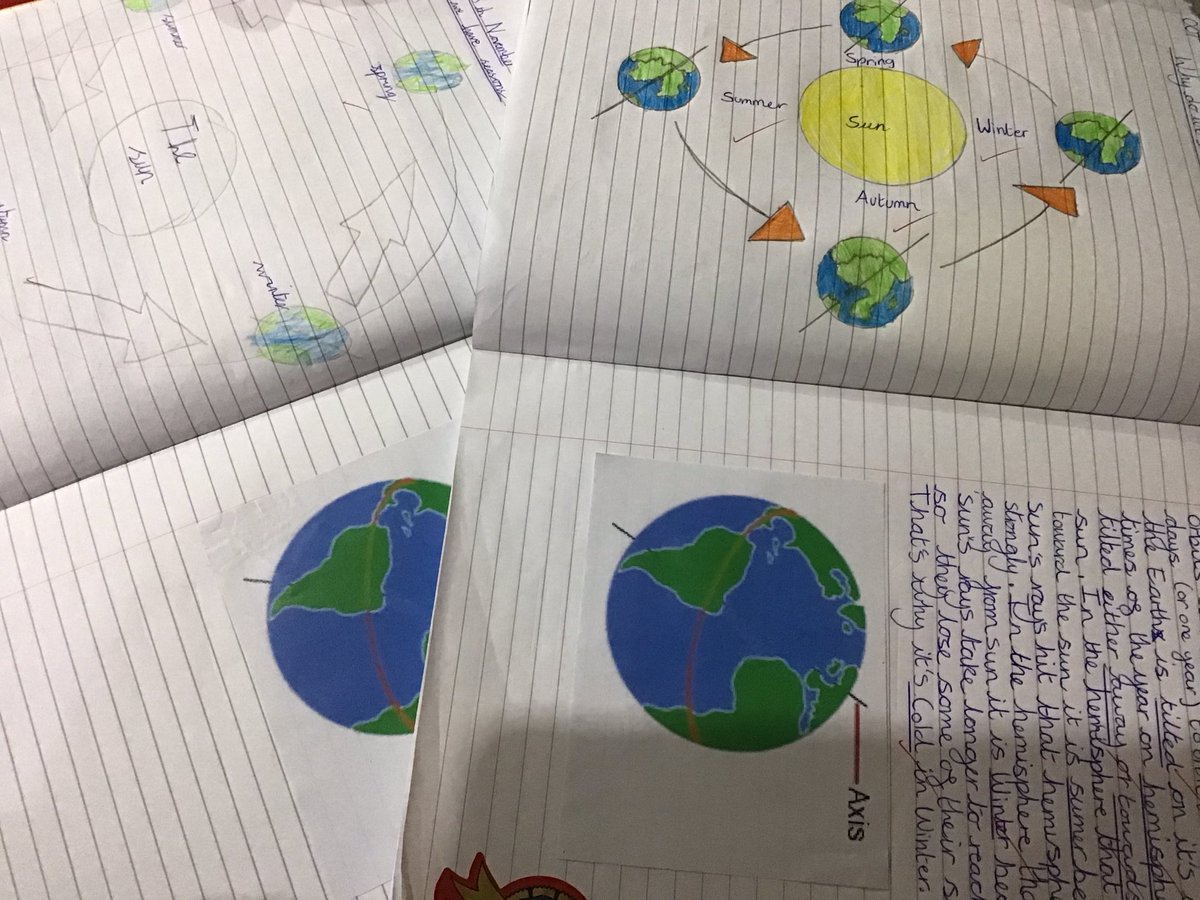 November
have seasons
spring
The
sun
winter
Why do
Spring
Summer
Sun
Winter
Autumn
days (or one year)
the Earth is tilted on it's
times of the year on hemisphe
tilted either away or towards
sun. In the hemisphere that
toward the sun it is sumer be
Sun's rays hit that hemisphe
stongly. In the hemisphere tha
away from sun it is Winter bec
Sun's rays take longer to reac
so they lose some of their s
That's why it's Cold in Winter.
Axis